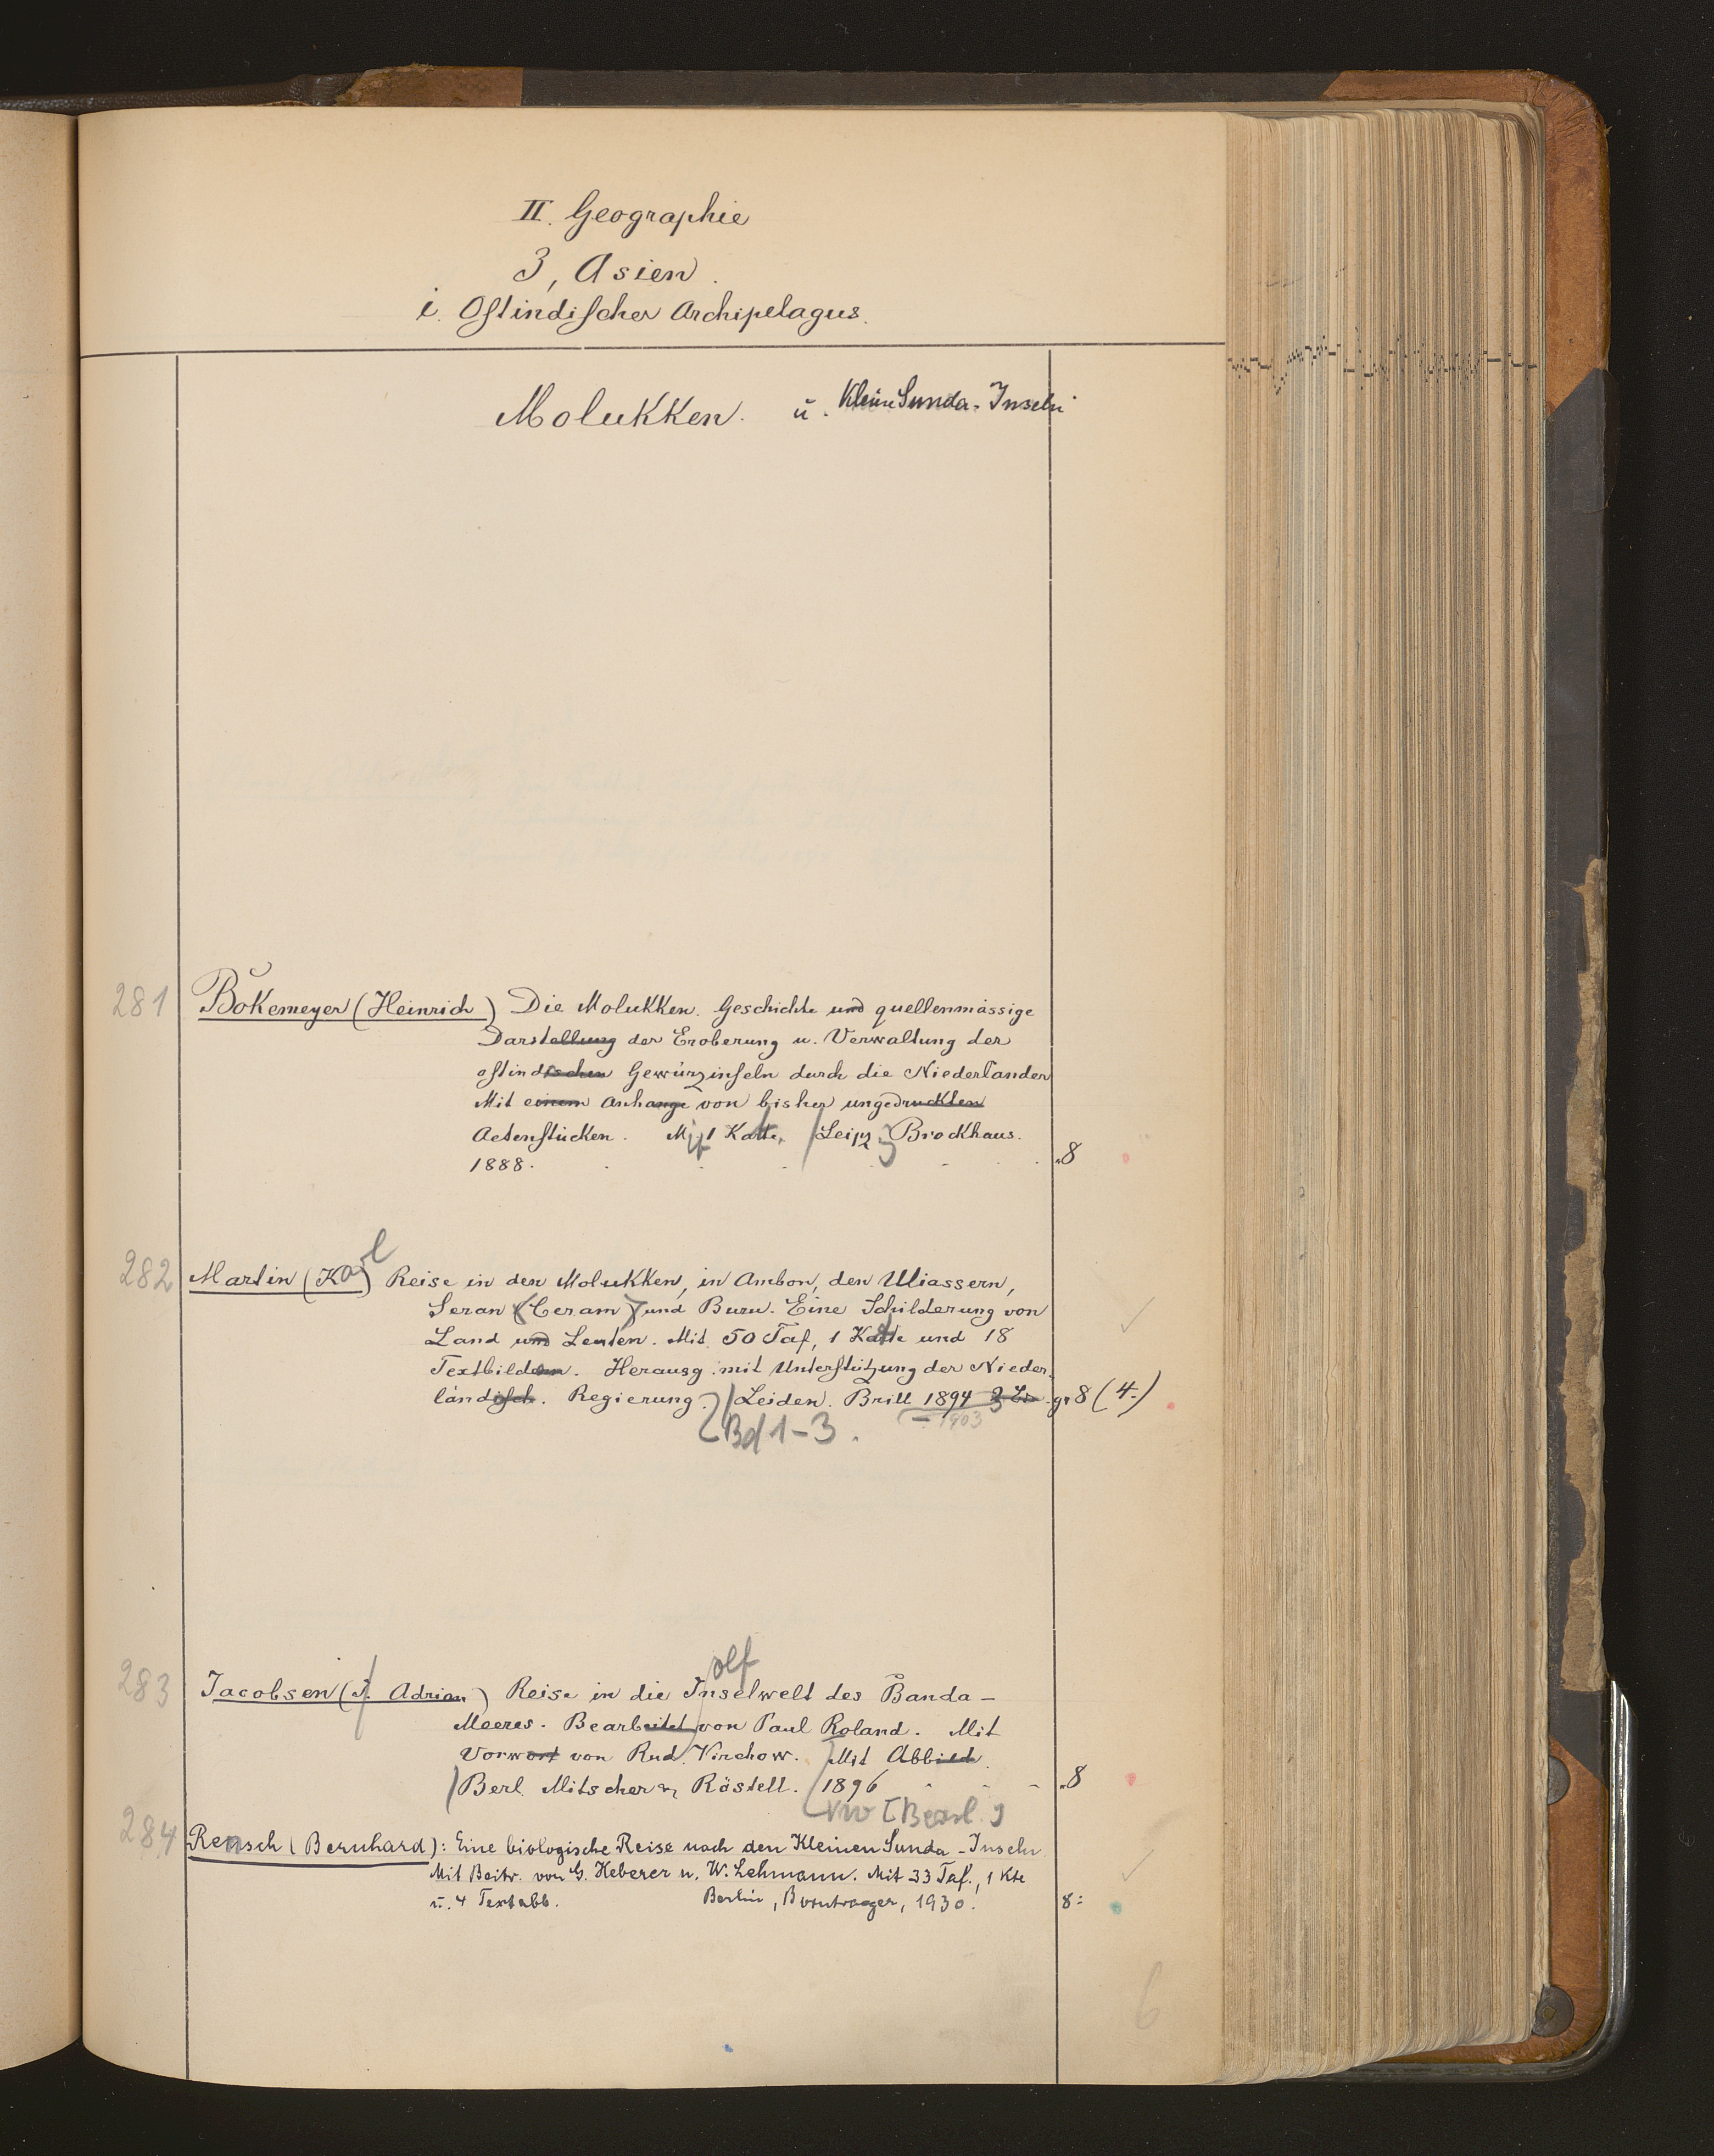 II. Geographie
3, Asien.
i. Ostindischer Archipelagus.
Molukken. u. Kleine Sunda-Inseln
281 Bokemeyer (Heinrich) Die Molukken. Geschichte und quellenmässige
Darstellung der Eroberung u. Verwaltung der
ostindischen Gewürzinseln durch die Niederlander
Mit einem Anhange von bisher ungedruckten
Actenstücken. Mit 1 Karte, Leipz. Brockhaus.
1888. 8
282 Martin (Karl) Reise in den Molukken, in Ambon, den Uliassern,
Seran (Ceram) und Buru. Eine Schilderung von
Land und Leuten. Mit 50 Taf, 1 Karte und 18
Textbildern. Herausg. mit Unterstützung der Nieder
ländisch. Regierung. Leiden. Brill 1894 gr 8 (4.)
– 1903
Bd 1-3.
olf
283 Jacobsen (J. Adrian) Reise in die Inselwelt des Banda-
Meeres. Bearbeitet von Paul Roland. Mit
Vorwort von Rud. Virchow. Mit Abbild.
Berl. Mitscher & Röstell. 1896 8
284 Rensch (Bernhard): Eine biologische Reise nach den Kleinen Sunda-Inseln
Mit Beitr. von G. Heberer u. W. Lehmann. Mit 33 Taf., 1 Kte
u. 4 Textabb. Berlin, Borntraeger, 1930. 8:
6